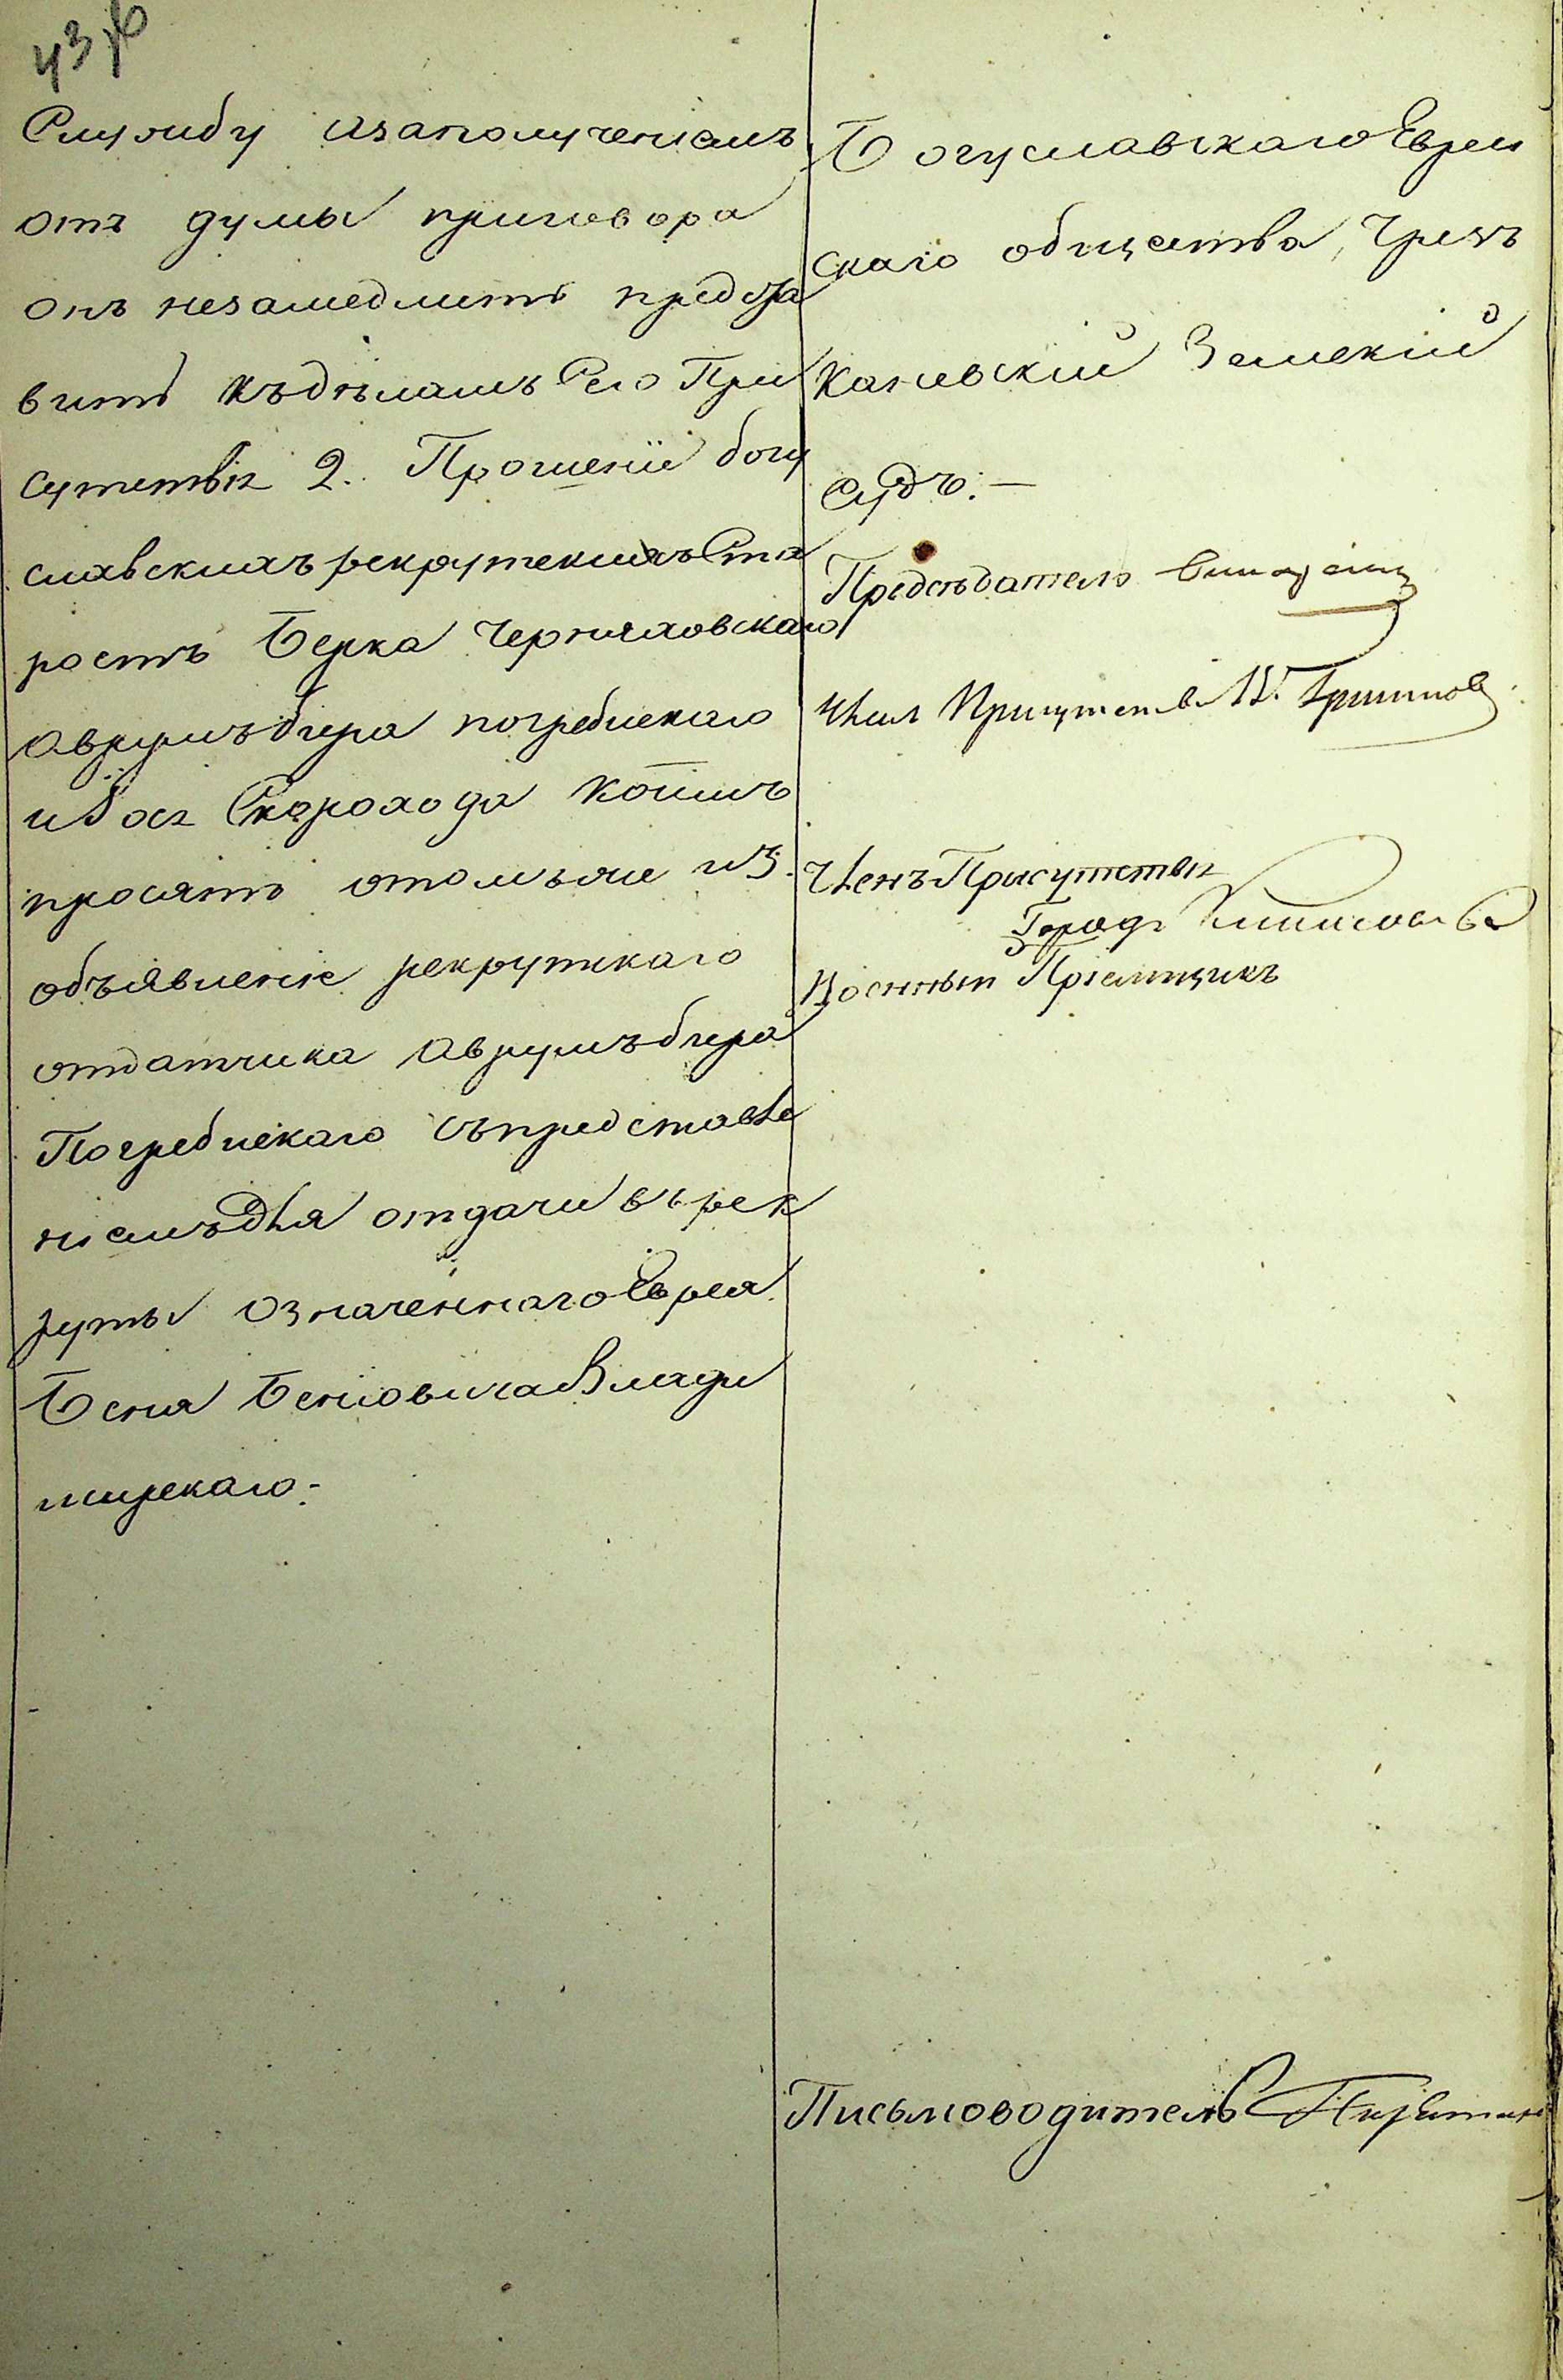 Службу изаполученіемъ
отъ думы приговора
онъ незамедлитъ предста
витъ къдѣламъ Сего При
сутствія 2. Прошеніе богу
славскихъ рекрутскихъ Ста
ростъ Берка Черняховскаго
Аврумъ бера погребискаго
и Скорохода коимъ
просятъ
объявленіе рекрутскаго
отдатчика Аврумъ бера
Погребискаго съпредставле
ніемъ для отдачи въ рек
руты означеннаго Еврея
Беня Беніовича Влади
мирскаго:
Богуславскаго Еврей
скаго общества, Чрезъ
Каневскій Земскій
Судъ. —
Предсѣдатель
Член Присутств
Членъ Присутствія
Военный Пріемщикъ
Письмоводитель